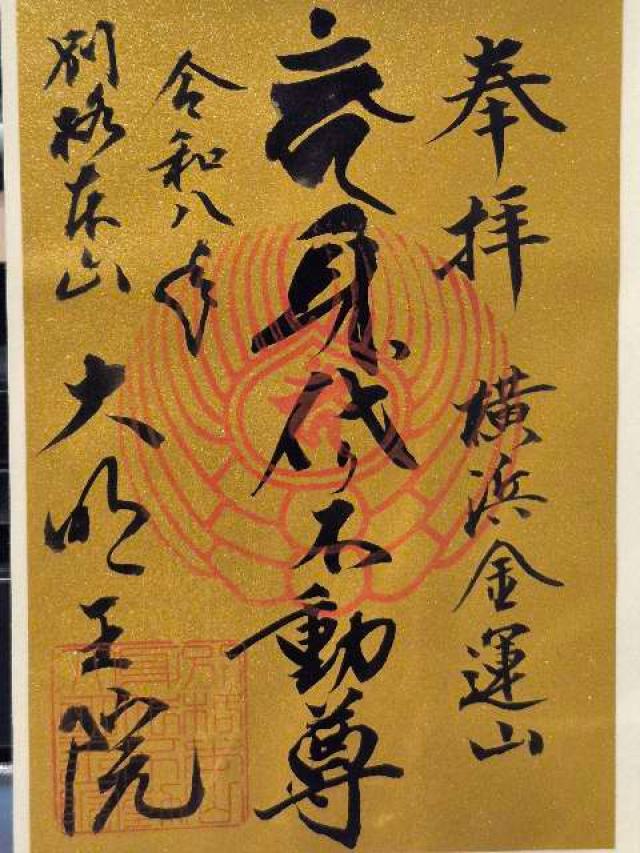 奉拝 横浜金運山
身代不動尊
令和八年
別格本山 大明王院